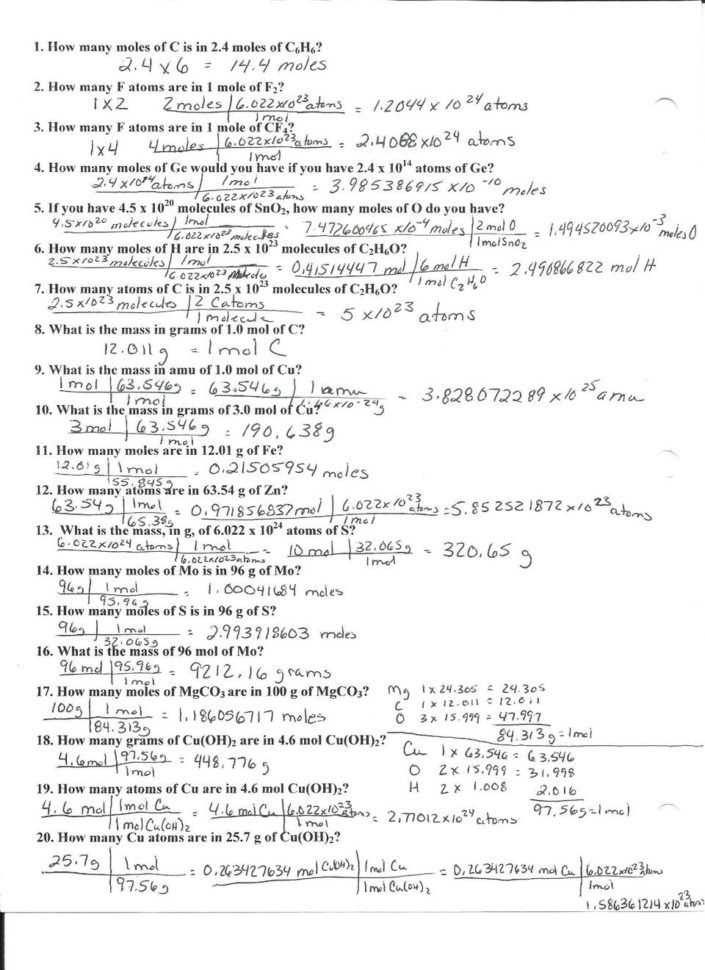 1. How many moles of C is in 2.4 moles of C₆H₆?
2.4 x 6 = 14.4 moles
2. How many F atoms are in 1 mole of F₂?
1 x 2 2 moles | 6.022x10²³ atoms / 1 mol = 1.2044 x 10²⁴ atoms
3. How many F atoms are in 1 mole of CF₄?
1x4 4 moles | 6.022x10²³ atoms / 1 mol = 2.4088 x10²⁴ atoms
4. How many moles of Ge would you have if you have 2.4 x 10¹⁴ atoms of Ge?
2.4 x10¹⁴ atoms | 1 mol / 6.022x10²³ atoms = 3.985386915 x10⁻¹⁰ moles
5. If you have 4.5 x 10²⁰ molecules of SnO₂, how many moles of O do you have?
4.5x10²⁰ molecules | 1 mol / 6.022x10²³ molecules = 7.472600465 x10⁻⁴ moles | 2 mol O / 1 mol SnO₂ = 1.494520093x10⁻³ moles O
6. How many moles of H are in 2.5 x 10²³ molecules of C₂H₆O?
2.5x10²³ molecules | 1 mol / 6.022x10²³ molecules = 0.41514447 mol | 6 mol H / 1 mol C₂H₆O = 2.490866822 mol H
7. How many atoms of C is in 2.5 x 10²³ molecules of C₂H₆O?
2.5x10²³ molecules | 2 C atoms / 1 molecule = 5 x10²³ atoms
8. What is the mass in grams of 1.0 mol of C?
12.011 g = 1 mol C
9. What is the mass in amu of 1.0 mol of Cu?
1 mol | 63.546g / 1 mol = 63.546g | 1 amu / 1.66x10⁻²⁴g = 3.828072289 x10²⁵ amu
10. What is the mass in grams of 3.0 mol of Cu?
3 mol | 63.546 g / 1 mol = 190.638g
11. How many moles are in 12.01 g of Fe?
12.01 g | 1 mol / 55.845g = 0.21505954 moles
12. How many atoms are in 63.54 g of Zn?
63.54g | 1 mol / 65.38g = 0.971856837 mol | 6.022x10²³ atoms / 1 mol = 5.852521872x10²³ atoms
13. What is the mass, in g, of 6.022 x 10²⁴ atoms of S?
6.022x10²⁴ atoms | 1 mol / 6.022x10²³ atoms = 10 mol | 32.065g / 1 mol = 320.65 g
14. How many moles of Mo is in 96 g of Mo?
96g | 1 mol / 95.96g = 1.00041684 moles
15. How many moles of S is in 96 g of S?
96g | 1 mol / 32.065g = 2.993918603 moles
16. What is the mass of 96 mol of Mo?
96 mol | 95.96g / 1 mol = 9212.16 grams
17. How many moles of MgCO₃ are in 100 g of MgCO₃?
Mg 1 x 24.305 = 24.305
C 1 x 12.011 = 12.011
O 3 x 15.999 = 47.997
84.313 g = 1 mol
100g | 1 mol / 84.313g = 1.186056717 moles
18. How many grams of Cu(OH)₂ are in 4.6 mol Cu(OH)₂?
Cu 1 x 63.546 = 63.546
O 2 x 15.999 = 31.998
H 2 x 1.008 2.016
97.56g = 1 mol
4.6mol | 97.56g / 1 mol = 448.776 g
19. How many atoms of Cu are in 4.6 mol Cu(OH)₂?
4.6 mol | 1 mol Cu / 1 mol Cu(OH)₂ = 4.6 mol Cu | 6.022x10²³ atoms / 1 mol = 2.77012x10²⁴ atoms
20. How many Cu atoms are in 25.7 g of Cu(OH)₂?
25.7g | 1 mol / 97.56g = 0.263427634 mol Cu(OH)₂ | 1 mol Cu / 1 mol Cu(OH)₂ = 0.263427634 mol Cu | 6.022x10²³ atoms / 1 mol
1.586361214 x10²³ atoms